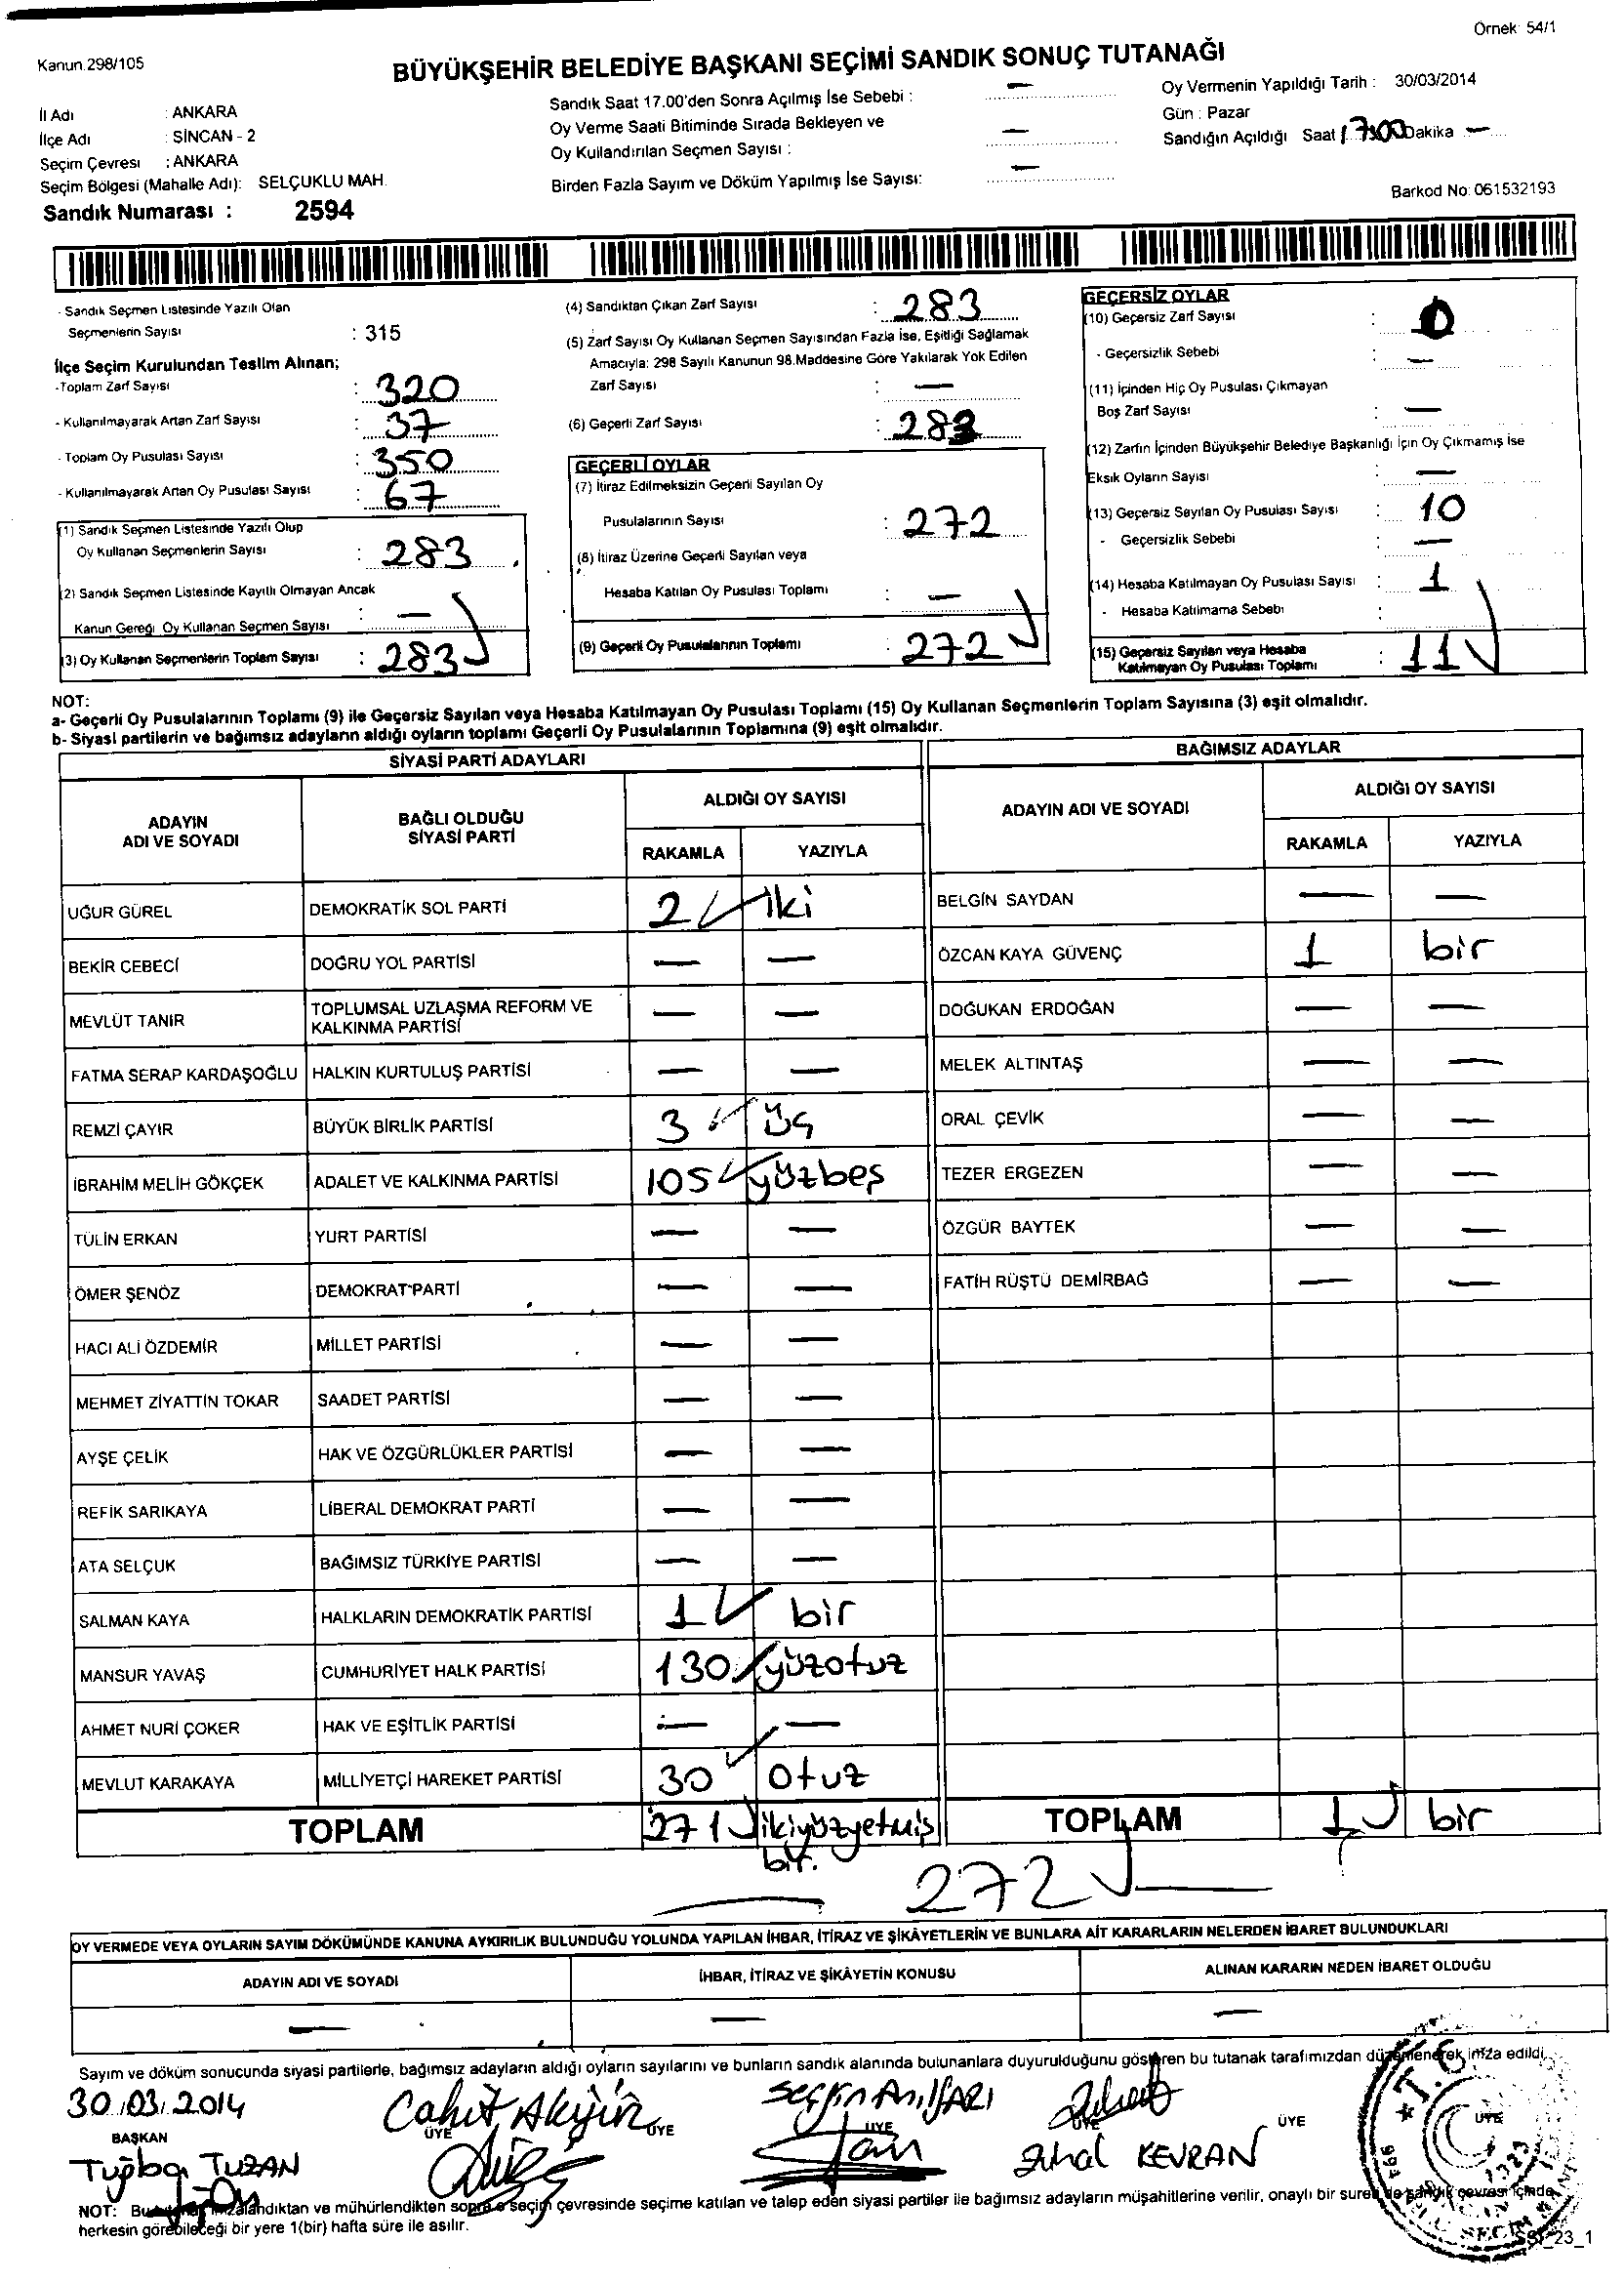 Örnek: 54/1
Kanun.298/105
BÜYÜKŞEHİR BELEDİYE BAŞKANI SEÇİMİ SANDIK SONUÇ TUTANAĞI
İl Adı : ANKARA
İlçe Adı : SİNCAN - 2
Seçim Çevresi : ANKARA
Seçim Bölgesi (Mahalle Adı): SELÇUKLU MAH.
Sandık Numarası : 2594
Sandık Saat 17.00'den Sonra Açılmış İse Sebebi : —
Oy Verme Saati Bitiminde Sırada Bekleyen ve
Oy Kullandırılan Seçmen Sayısı : —
Birden Fazla Sayım ve Döküm Yapılmış İse Sayısı: —
Oy Vermenin Yapıldığı Tarih : 30/03/2014
Gün : Pazar
Sandığın Açıldığı Saat 17:00 Dakika —
Barkod No: 061532193
- Sandık Seçmen Listesinde Yazılı Olan
Seçmenlerin Sayısı : 315
İlçe Seçim Kurulundan Teslim Alınan;
-Toplam Zarf Sayısı : 320
- Kullanılmayarak Artan Zarf Sayısı : 37
- Toplam Oy Pusulası Sayısı : 350
- Kullanılmayarak Artan Oy Pusulası Sayısı : 67
(1) Sandık Seçmen Listesinde Yazılı Olup
Oy Kullanan Seçmenlerin Sayısı : 283
(2) Sandık Seçmen Listesinde Kayıtlı Olmayan Ancak
Kanun Gereği Oy Kullanan Seçmen Sayısı : —
(3) Oy Kullanan Seçmenlerin Toplam Sayısı : 283
(4) Sandıktan Çıkan Zarf Sayısı : 283
(5) Zarf Sayısı Oy Kullanan Seçmen Sayısından Fazla İse, Eşitliği Sağlamak
Amacıyla: 298 Sayılı Kanunun 98.Maddesine Göre Yakılarak Yok Edilen
Zarf Sayısı : —
(6) Geçerli Zarf Sayısı : 283
GEÇERLİ OYLAR
(7) İtiraz Edilmeksizin Geçerli Sayılan Oy
Pusulalarının Sayısı : 272
(8) İtiraz Üzerine Geçerli Sayılan veya
Hesaba Katılan Oy Pusulası Toplamı : —
(9) Geçerli Oy Pusulalarının Toplamı : 272
GEÇERSİZ OYLAR
(10) Geçersiz Zarf Sayısı : 0
- Geçersizlik Sebebi : —
(11) İçinden Hiç Oy Pusulası Çıkmayan
Boş Zarf Sayısı : —
(12) Zarfın İçinden Büyükşehir Belediye Başkanlığı İçin Oy Çıkmamış İse
Eksik Oyların Sayısı : —
(13) Geçersiz Sayılan Oy Pusulası Sayısı : 10
- Geçersizlik Sebebi : —
(14) Hesaba Katılmayan Oy Pusulası Sayısı : 1
- Hesaba Katılmama Sebebi :
(15) Geçersiz Sayılan veya Hesaba
Katılmayan Oy Pusulası Toplamı : 11
NOT:
a- Geçerli Oy Pusulalarının Toplamı (9) ile Geçersiz Sayılan veya Hesaba Katılmayan Oy Pusulası Toplamı (15) Oy Kullanan Seçmenlerin Toplam Sayısına (3) eşit olmalıdır.
b- Siyasi partilerin ve bağımsız adayların aldığı oyların toplamı Geçerli Oy Pusulalarının Toplamına (9) eşit olmalıdır.
SİYASİ PARTİ ADAYLARI
ADAYIN ADI VE SOYADI
BAĞLI OLDUĞU SİYASİ PARTİ
ALDIĞI OY SAYISI
RAKAMLA YAZIYLA
UĞUR GÜREL DEMOKRATİK SOL PARTİ 2 iki
BEKİR CEBECİ DOĞRU YOL PARTİSİ — —
MEVLÜT TANIR TOPLUMSAL UZLAŞMA REFORM VE
KALKINMA PARTİSİ — —
FATMA SERAP KARDAŞOĞLU HALKIN KURTULUŞ PARTİSİ — —
REMZİ ÇAYIR BÜYÜK BİRLİK PARTİSİ 3 üç
İBRAHİM MELİH GÖKÇEK ADALET VE KALKINMA PARTİSİ 105 yüzbeş
TÜLİN ERKAN YURT PARTİSİ — —
ÖMER ŞENÖZ DEMOKRAT PARTİ — —
HACI ALİ ÖZDEMİR MİLLET PARTİSİ — —
MEHMET ZİYATTİN TOKAR SAADET PARTİSİ — —
AYŞE ÇELİK HAK VE ÖZGÜRLÜKLER PARTİSİ — —
REFİK SARIKAYA LİBERAL DEMOKRAT PARTİ — —
ATA SELÇUK BAĞIMSIZ TÜRKİYE PARTİSİ — —
SALMAN KAYA HALKLARIN DEMOKRATİK PARTİSİ 1 bir
MANSUR YAVAŞ CUMHURİYET HALK PARTİSİ 130 yüzotuz
AHMET NURİ ÇOKER HAK VE EŞİTLİK PARTİSİ — —
MEVLUT KARAKAYA MİLLİYETÇİ HAREKET PARTİSİ 30 otuz
TOPLAM 271 ikiyüzyetmiş
bir.
BAĞIMSIZ ADAYLAR
ADAYIN ADI VE SOYADI
ALDIĞI OY SAYISI
RAKAMLA YAZIYLA
BELGİN SAYDAN — —
ÖZCAN KAYA GÜVENÇ 1 bir
DOĞUKAN ERDOĞAN — —
MELEK ALTINTAŞ — —
ORAL ÇEVİK — —
TEZER ERGEZEN — —
ÖZGÜR BAYTEK — —
FATİH RÜŞTÜ DEMİRBAĞ — —
TOPLAM 1 bir
272
OY VERMEDE VEYA OYLARIN SAYIM DÖKÜMÜNDE KANUNA AYKIRILIK BULUNDUĞU YOLUNDA YAPILAN İHBAR, İTİRAZ VE ŞİKÂYETLERİN VE BUNLARA AİT KARARLARIN NELERDEN İBARET BULUNDUKLARI
ADAYIN ADI VE SOYADI İHBAR, İTİRAZ VE ŞİKÂYETİN KONUSU ALINAN KARARIN NEDEN İBARET OLDUĞU
— — —
Sayım ve döküm sonucunda siyasi partilerle, bağımsız adayların aldığı oyların sayılarını ve bunların sandık alanında bulunanlara duyurulduğunu gösteren bu tutanak tarafımızdan düzenlenerek imza edildi.
30.03.2014
BAŞKAN ÜYE ÜYE ÜYE ÜYE ÜYE ÜYE
Tuğba TUZAN
Cahit Akyüz
Zuhal KEVRAN
NOT: imzalandıktan ve mühürlendikten sonra o seçim çevresinde seçime katılan ve talep eden siyasi partiler ile bağımsız adayların müşahitlerine verilir, onaylı bir sureti de sandık çevresi içinde
herkesin görebileceği bir yere 1(bir) hafta süre ile asılır.
T.C.
23_1